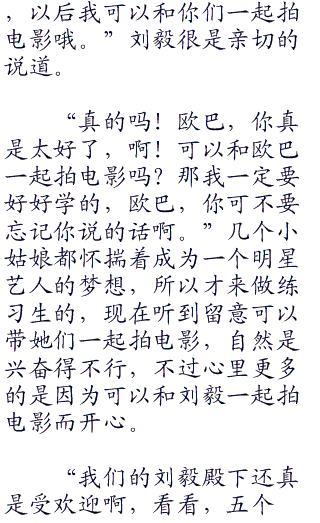 ，以后我可以和你们一起拍
电影哦。”刘毅很是亲切的
说道。
“真的吗！欧巴，你真
是太好了，啊！可以和欧巴
一起拍电影吗？那我一定要
好好学的，欧巴，你可不要
忘记你说的话啊。”几个小
姑娘都怀揣着成为一个明星
艺人的梦想，所以才来做练
习生的，现在听到留意可以
带她们一起拍电影，自然是
兴奋得不行，不过心里更多
的是因为可以和刘毅一起拍
电影而开心。
“我们的刘毅殿下还真
是受欢迎啊，看看，五个